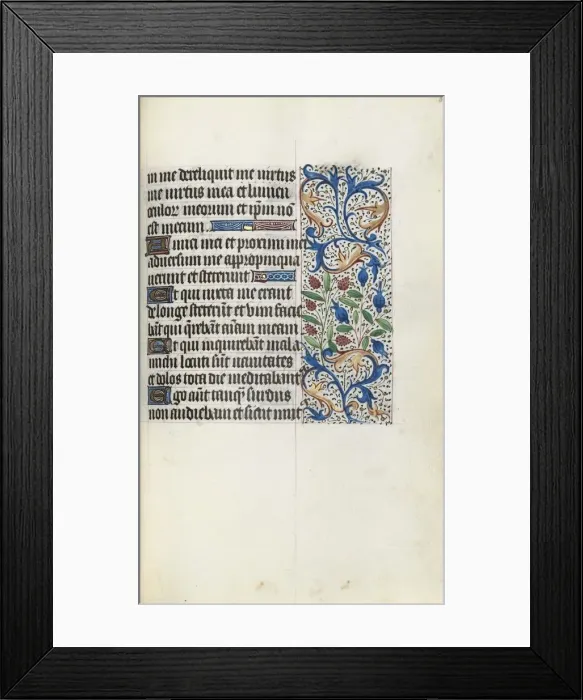 in me dereliquit me virtus
me virtus mea et lumen
oculor meorum et ipm nō
est mecum
Amici mei et proximi mei
adversum me appropinqua
verunt et steterunt
Et qui iuxta me erant
de longe steterūt et vim facie
bāt qui q̄rebāt aīam meam
Et qui inquirebāt mala
michi locuti sūt vanitates
et dolos tota die meditabāt
Ego aūt tanq̄ surdus
non audiebam et sicut mut